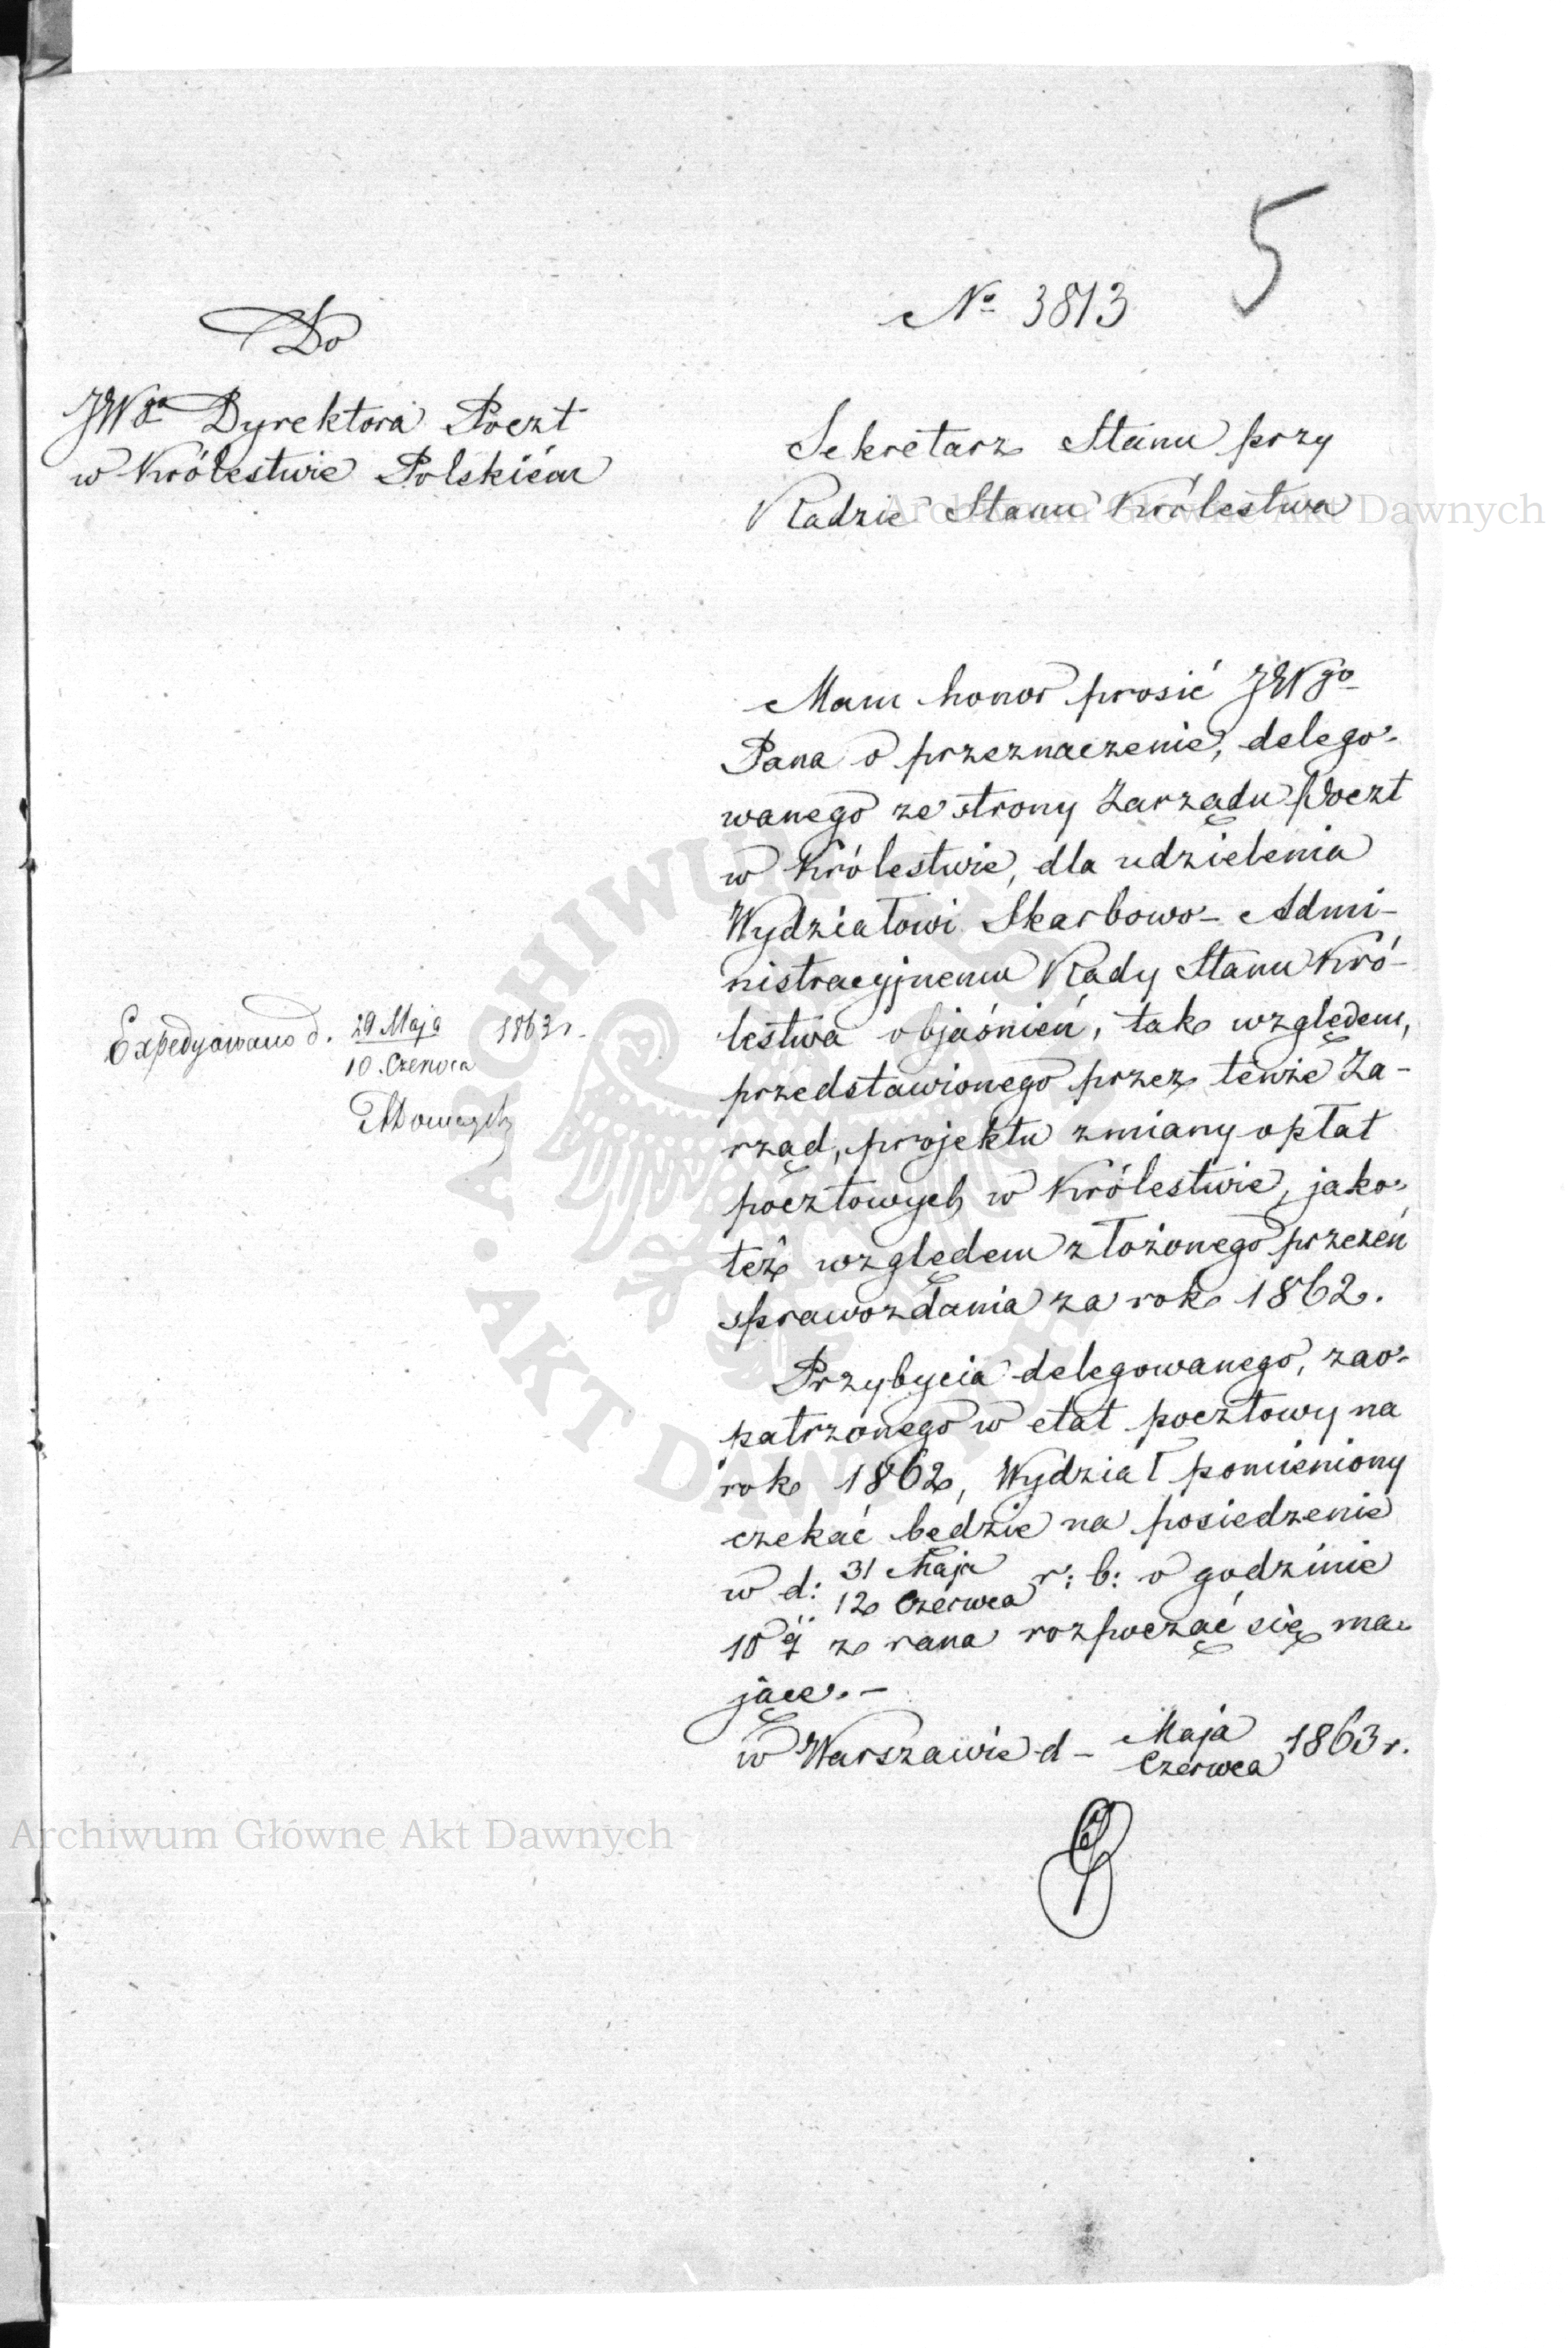 5
Nº 3813
Do
JWgo Dyrektora Poczt
w Królestwie Polskiém
Sekretarz Stanu przy
Radzie Stanu Królestwa
Archiwum Główne Akt Dawnych
Mam honor prosić JWgo
Pana o przeznaczenie, delego-
wanego ze strony Zarządu Poczt
w Królestwie, dla udzielenia
Wydziałowi Skarbowo-Admi-
nistracyjnemu Rady Stanu Kró-
lestwa objaśnień, tak względem,
przedstawionego przez tenże Za-
rząd, projektu zmiany opłat
pocztowych w Królestwie, jako-
też względem złożonego przezeń
sprawozdania za rok 1862.
Przybycia delegowanego, zao-
patrzonego w etat pocztowy na
rok 1862, Wydział pomieniony
czekać będzie na posiedzenie
w d: 31 Maja r: b: o godzinie
12 Czerwca
10ej z rana rozpocząć się ma-
jące.-
w Warszawie d - Maja 1863 r.
Czerwca
Expedyowano d. 29 Maja 1863 r.
10 Czerwca
ARCHIWUM GŁÓWNE
AKT DAWNYCH
Archiwum Główne Akt Dawnych